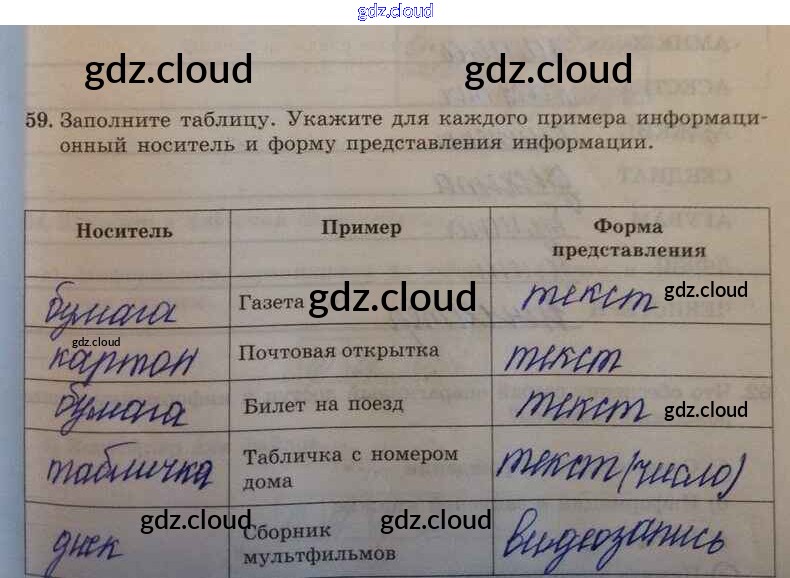 gdz.cloud
gdz.cloud gdz.cloud
59. Заполните таблицу. Укажите для каждого примера информаци-
онный носитель и форму представления информации.
Носитель Пример Форма
представления
бумага Газета gdz.cloud текст gdz.cloud
gdz.cloud
картон Почтовая открытка текст
бумага Билет на поезд текст gdz.cloud
табличка Табличка с номером текст (число)
дома
gdz.cloud gdz.cloud
диск Сборник видеозапись
мультфильмов